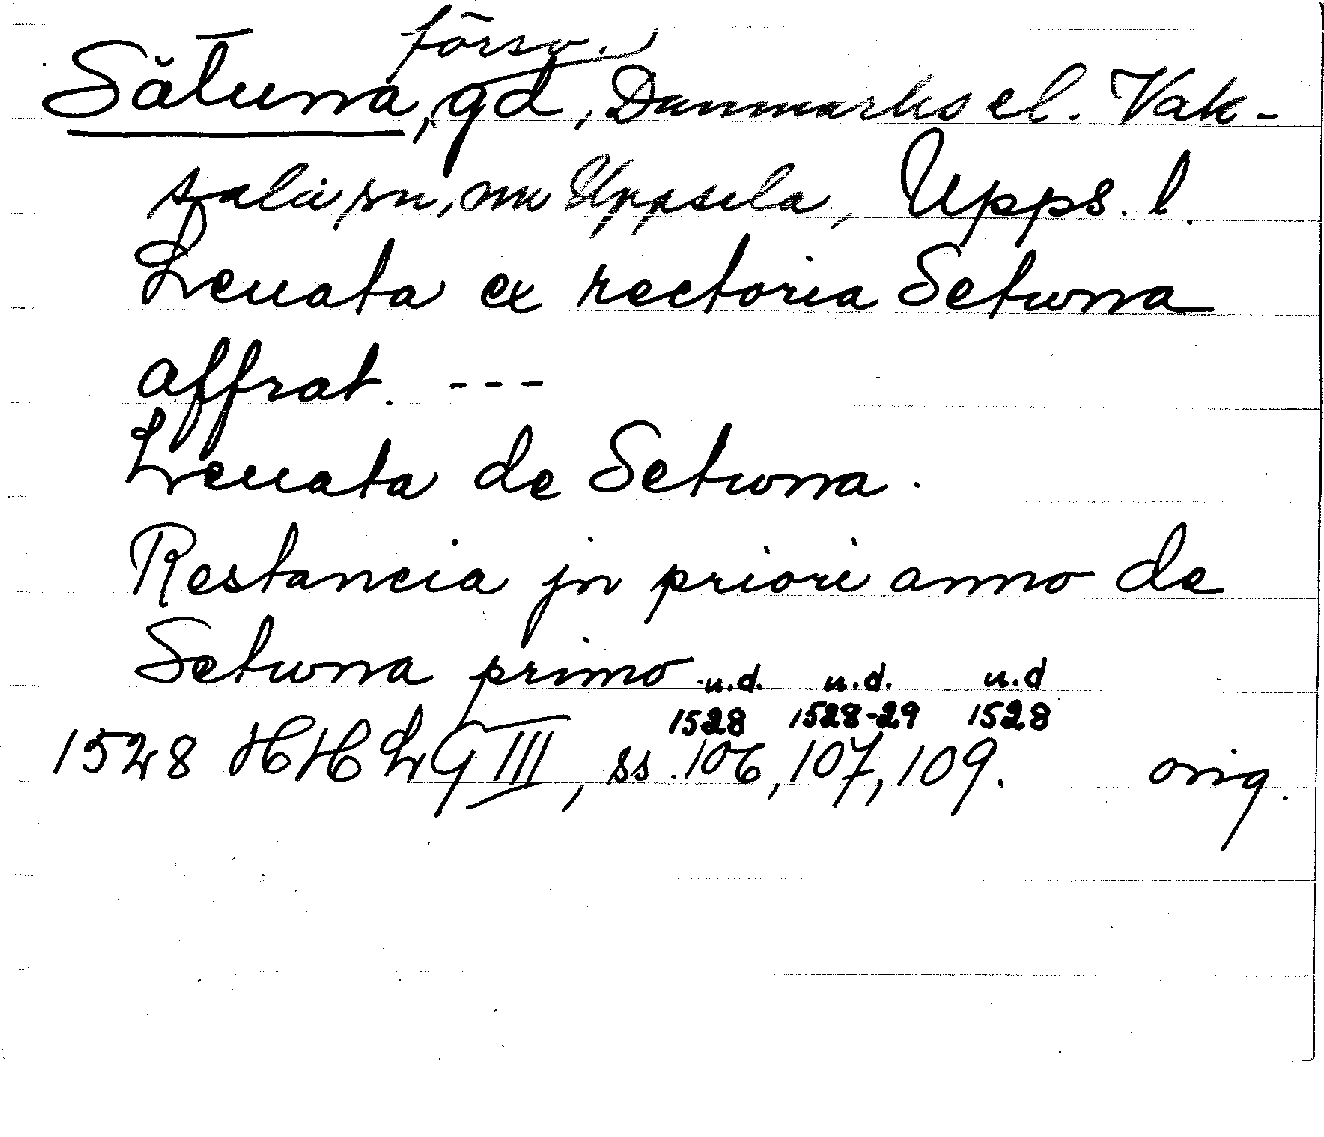 försv.
Sätuna, gd, Danmarks el. Vak-
sala sn, nu Uppsala, Upps. l.
Leuata ex rectoria Setuna
affrat. ---
Leuata de Setuna.
Restancia jn priori anno de
Setuna primo u.d. u.d. u.d
1528 1528-29 1528
1528 HH LG III, ss. 106, 107, 109. orig.